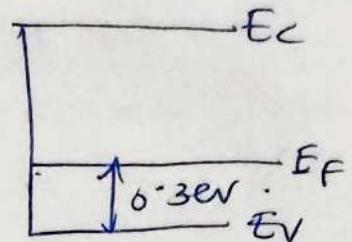 Ec
EF
0.3eV
Ev